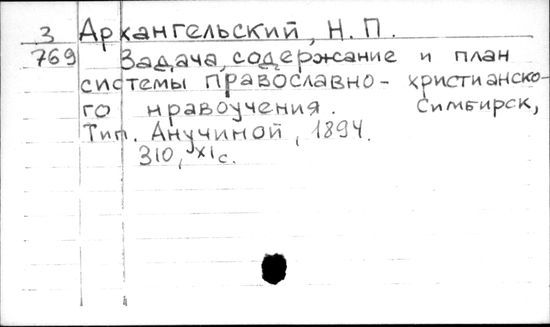 З Архангельский, Н. П.
769 Задача, содержание и план
системы православно-христианско-
го нравоучения. Симбирск,
Тип. Анучиной, 1894.
310, XI с.